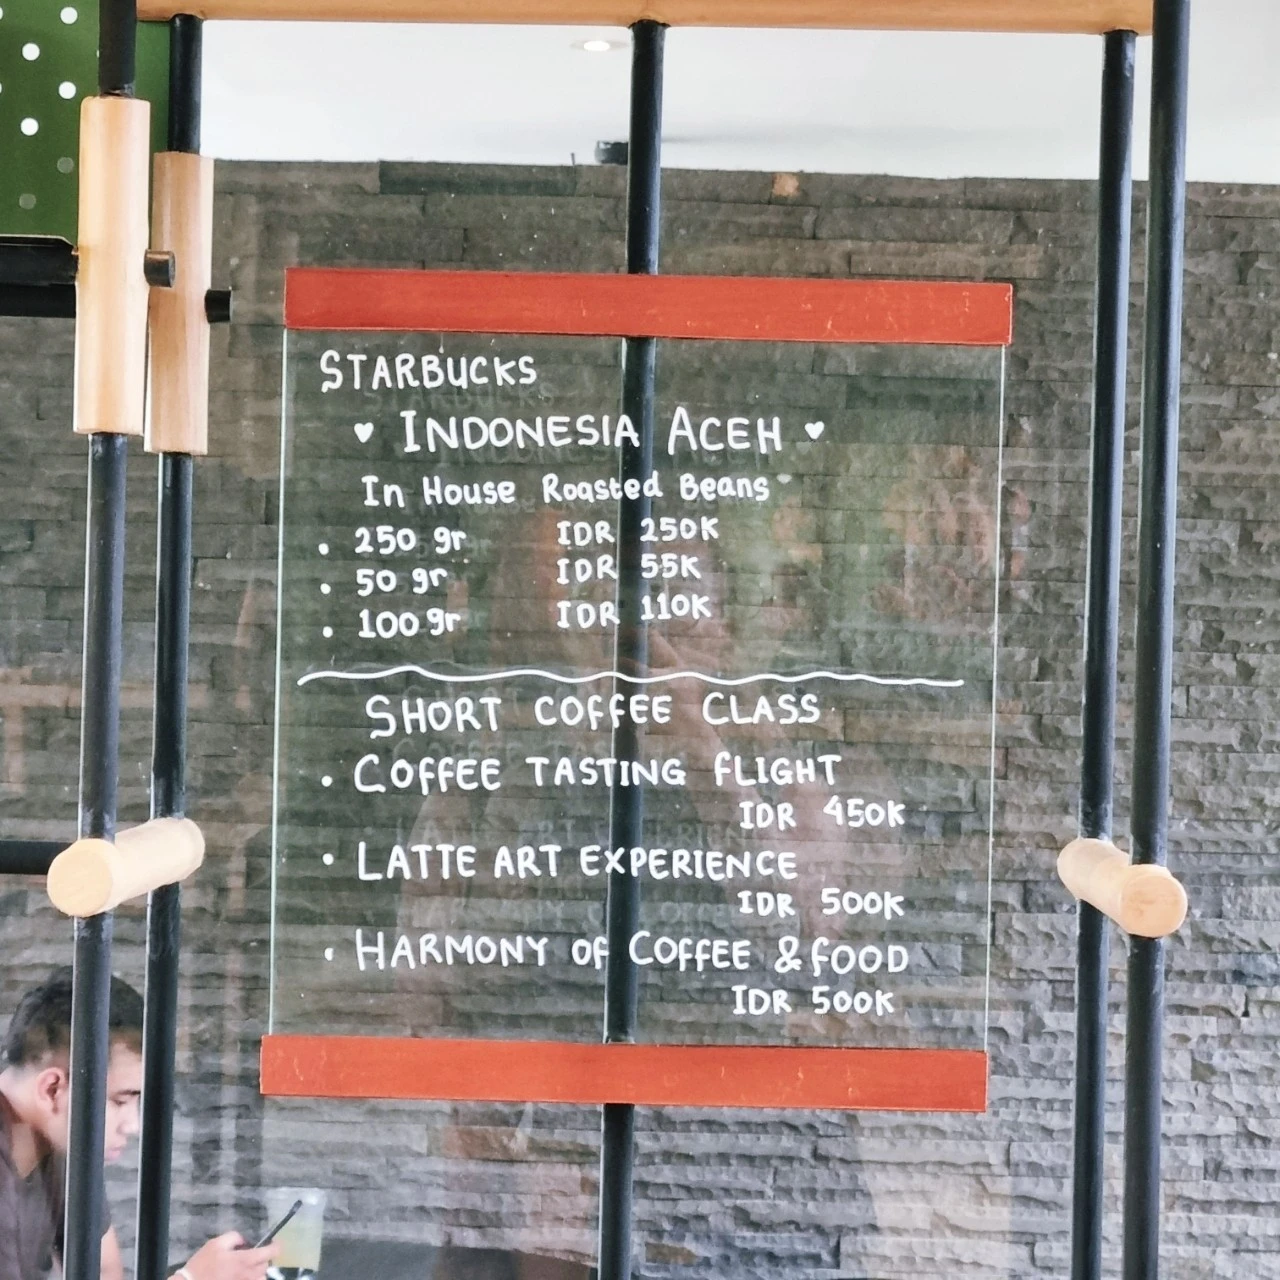 STARBUCKS
♥ INDONESIA ACEH ♥
In House Roasted Beans
• 250 gr IDR 250K
• 50 gr IDR 55K
• 100 gr IDR 110K
SHORT COFFEE CLASS
• COFFEE TASTING FLIGHT
IDR 450K
• LATTE ART EXPERIENCE
IDR 500K
• HARMONY OF COFFEE & FOOD
IDR 500K